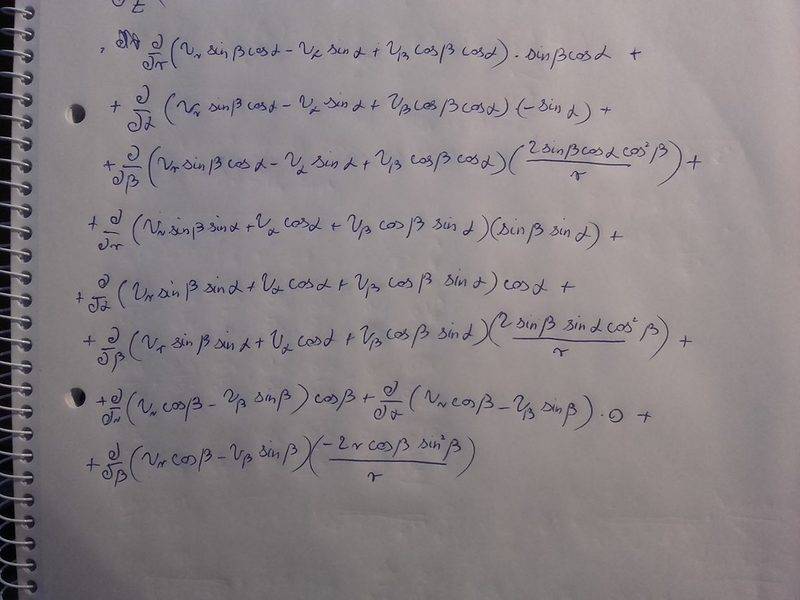 , ∂/∂r (vᵣ sinβ cosα − v_α sinα + v_β cosβ cosα) · sinβ cosα +
+ ∂/∂α (vᵣ sinβ cosα − v_α sinα + v_β cosβ cosα) (−sinα) +
+ ∂/∂β (vᵣ sinβ cosα − v_α sinα + v_β cosβ cosα) (2 sinβ cosα cos²β / r) +
+ ∂/∂r (vᵣ sinβ sinα + v_α cosα + v_β cosβ sinα) (sinβ sinα) +
+ ∂/∂α (vᵣ sinβ sinα + v_α cosα + v_β cosβ sinα) cosα +
+ ∂/∂β (vᵣ sinβ sinα + v_α cosα + v_β cosβ sinα) (2 sinβ sinα cos²β / r) +
+ ∂/∂r (vᵣ cosβ − v_β sinβ) cosβ + ∂/∂α (vᵣ cosβ − v_β sinβ) · 0 +
+ ∂/∂β (vᵣ cosβ − v_β sinβ) (−2r cosβ sin²β / r)